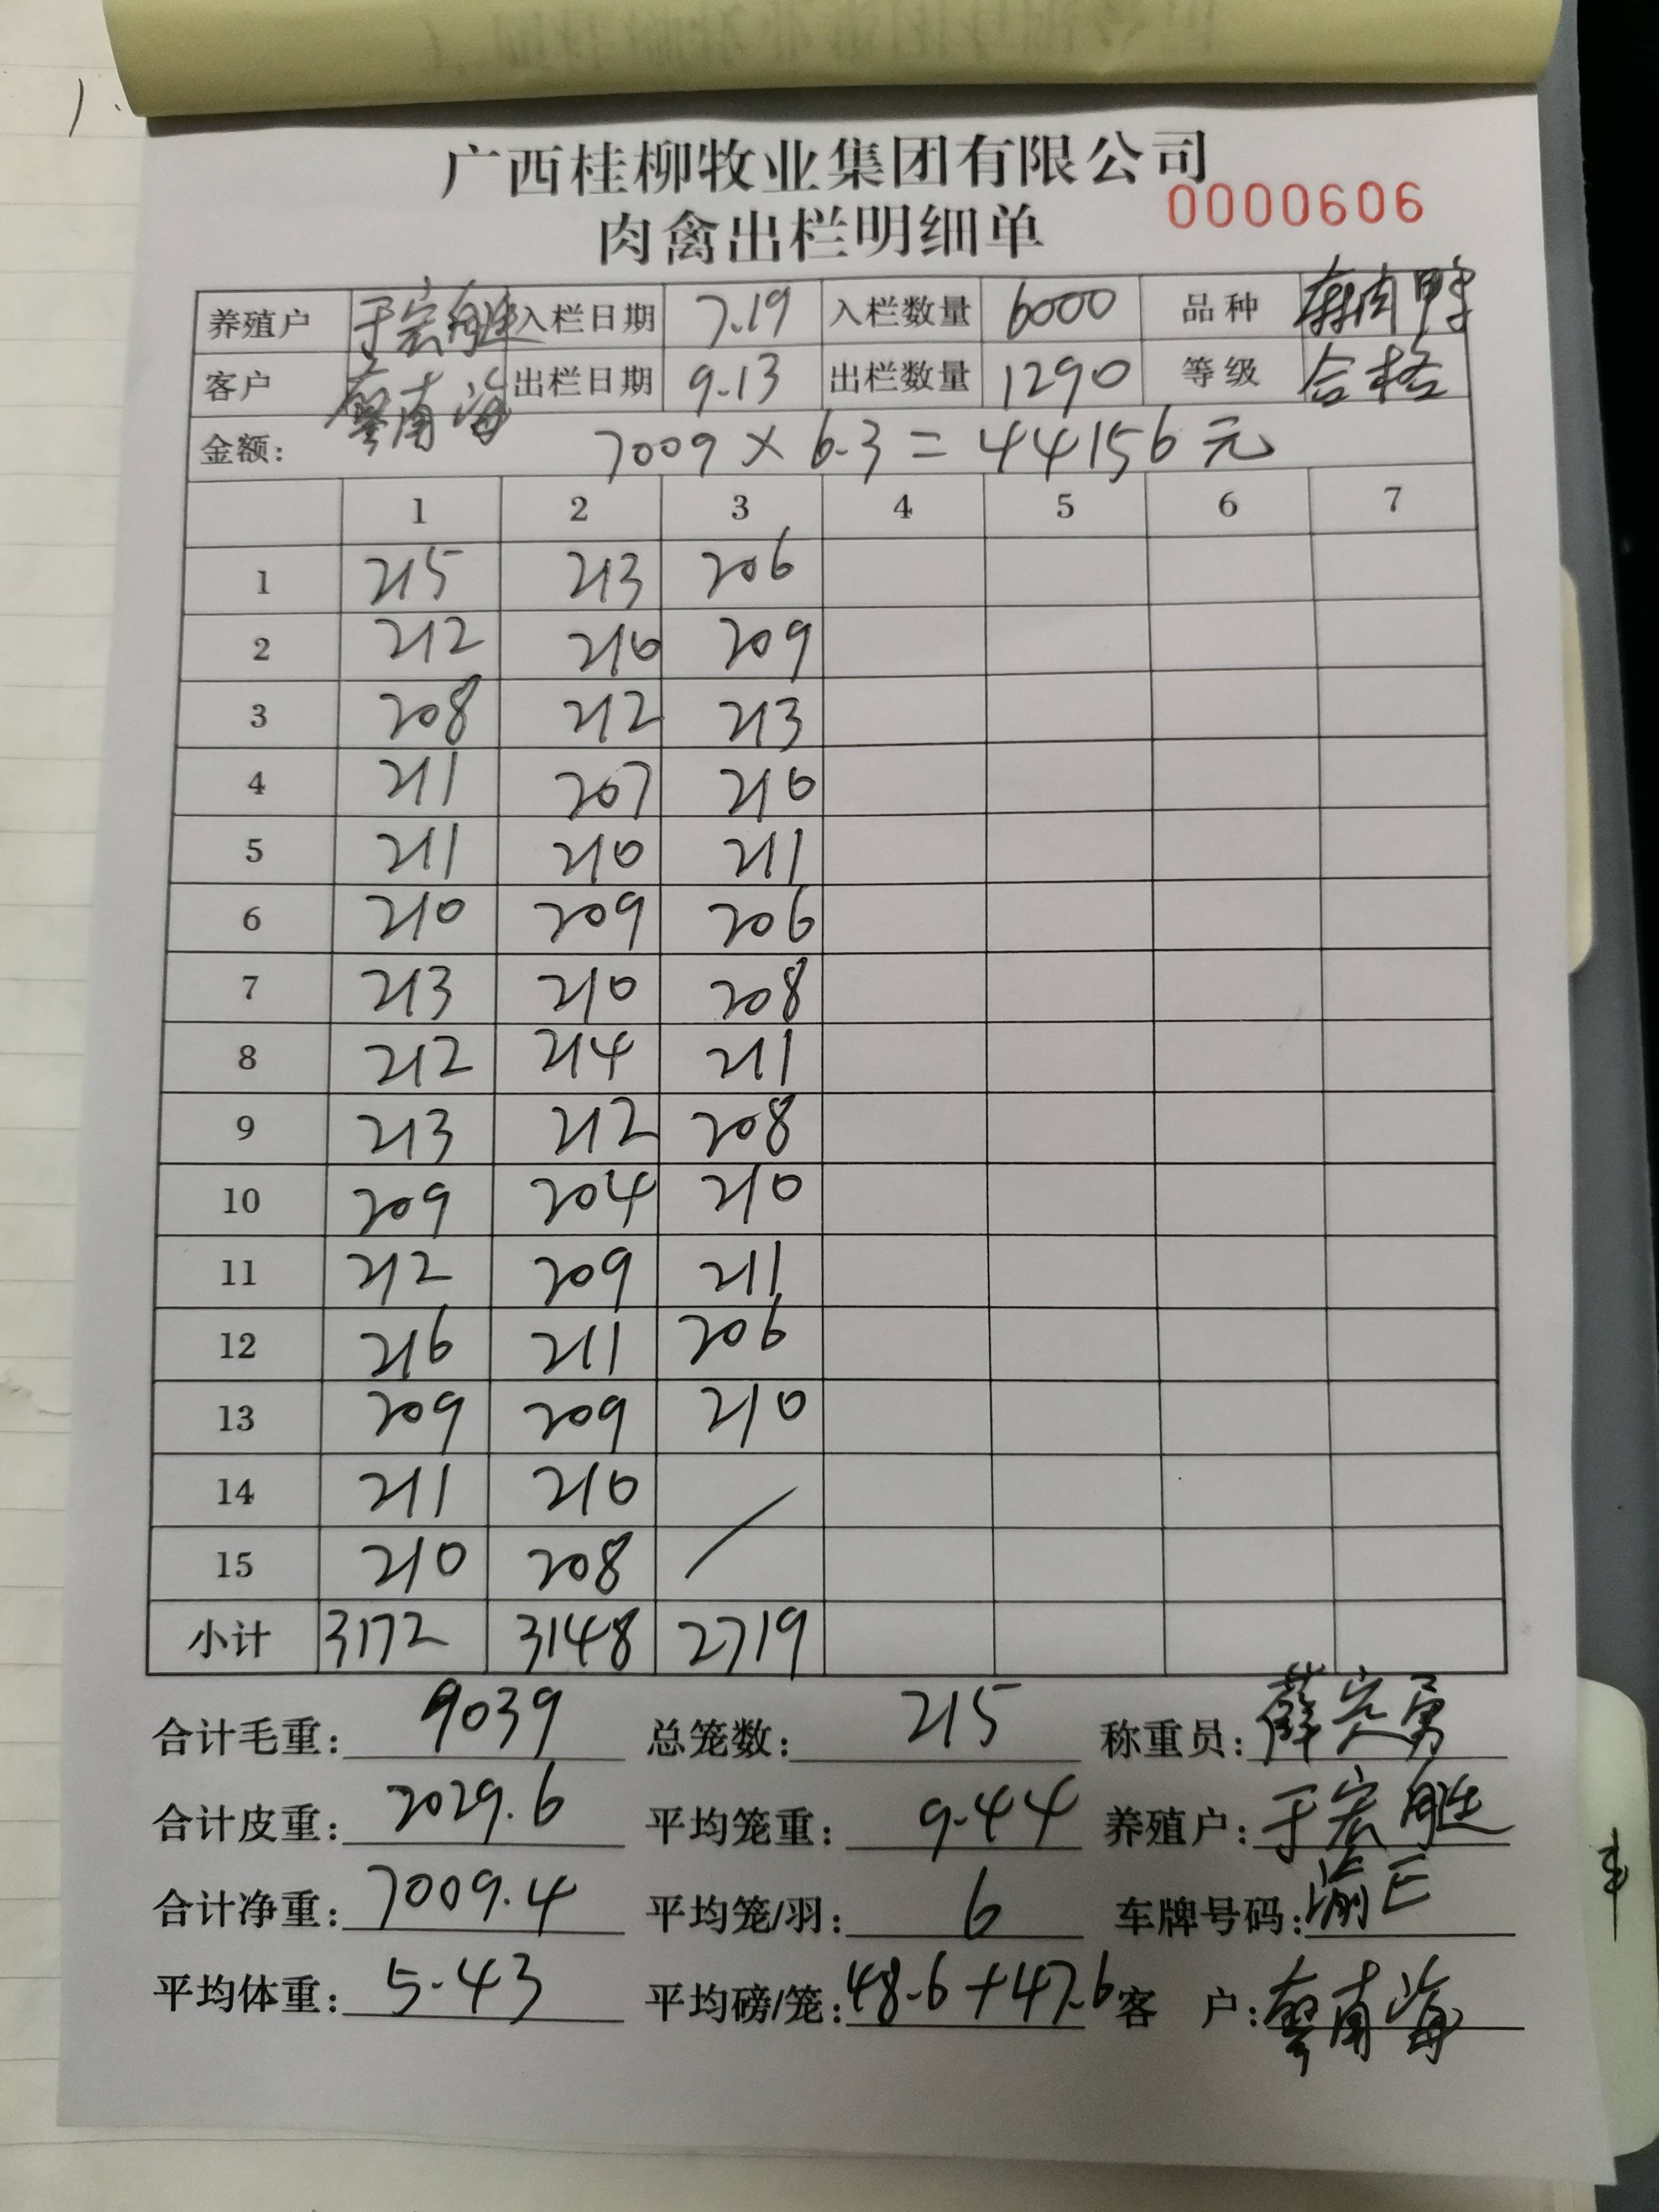 广西桂柳牧业集团有限公司
肉禽出栏明细单 0000606
养殖户 于宏胜 入栏日期 7.19 入栏数量 6000 品种 麻肉鸭
客户 廖南海 出栏日期 9.13 出栏数量 1290 等级 合格
金额: 7009 × 6.3 = 44156元
1 2 3 4 5 6 7
1 215 213 206
2 212 210 209
3 208 212 213
4 211 207 210
5 211 210 211
6 210 209 206
7 213 210 208
8 212 214 211
9 213 212 208
10 209 204 210
11 212 209 211
12 216 211 206
13 209 209 210
14 211 210
15 210 208
小计 3172 3148 2719
合计毛重: 9039 总笼数: 215 称重员: 薛宾勇
合计皮重: 2029.6 平均笼重: 9.44 养殖户: 于宏胜
合计净重: 7009.4 平均笼/羽: 6 车牌号码:
平均体重: 5.43 平均磅/笼: 48.6+47.6 客 户: 廖南海